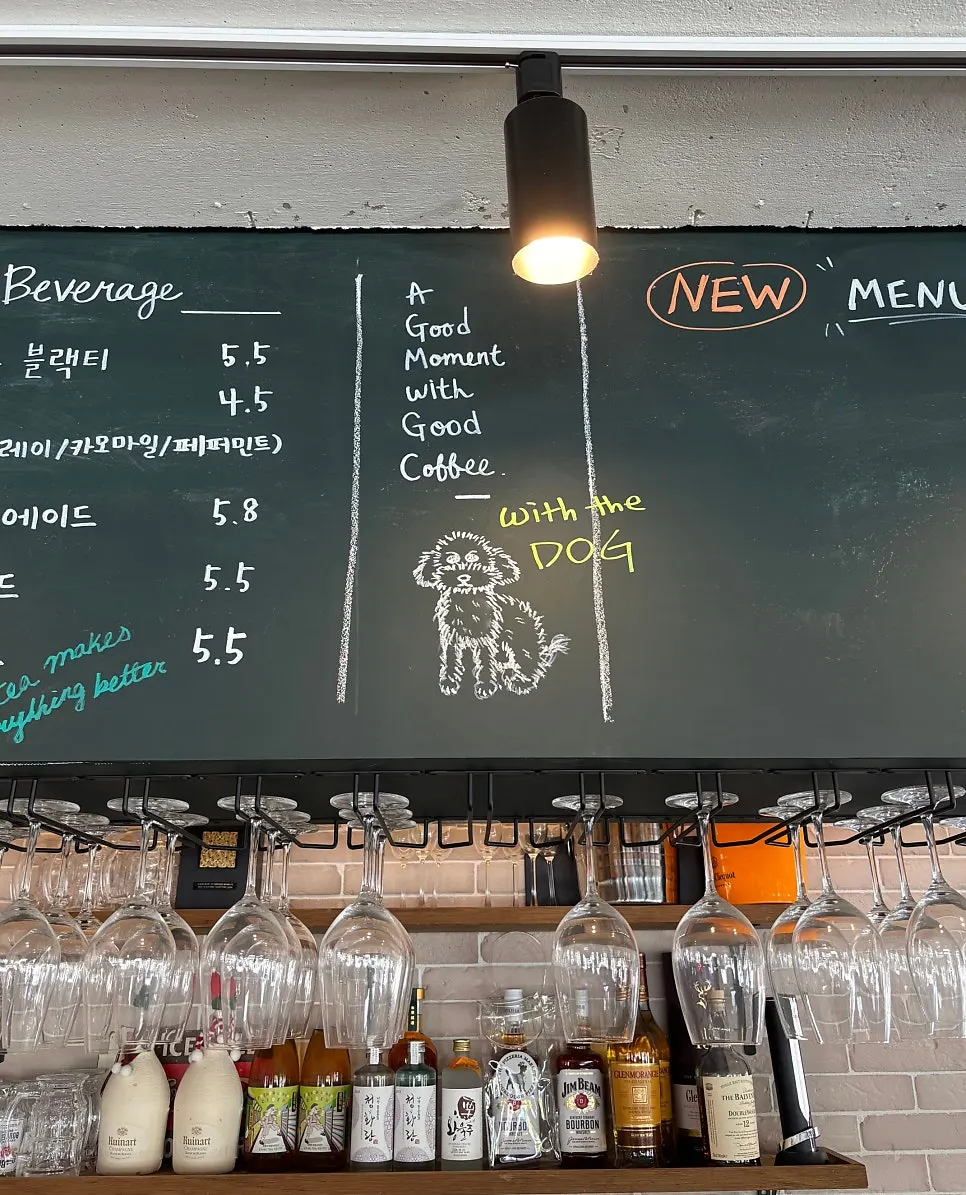 Beverage
블랙티 5.5
4.5
레이/카모마일/페퍼민트)
에이드 5.8
드 5.5
5.5
tea makes
everything better
A
Good
Moment
with
Good
Coffee.
with the
DOG
NEW MENU
Clicquot
Ruinart
CHAMPAGNE
Ruinart
CHAMPAGNE
청화랑
청화랑
JIM BEAM
BOURBON
GLENMORANGIE
THE BALVENIE
DOUBLEWOOD
12